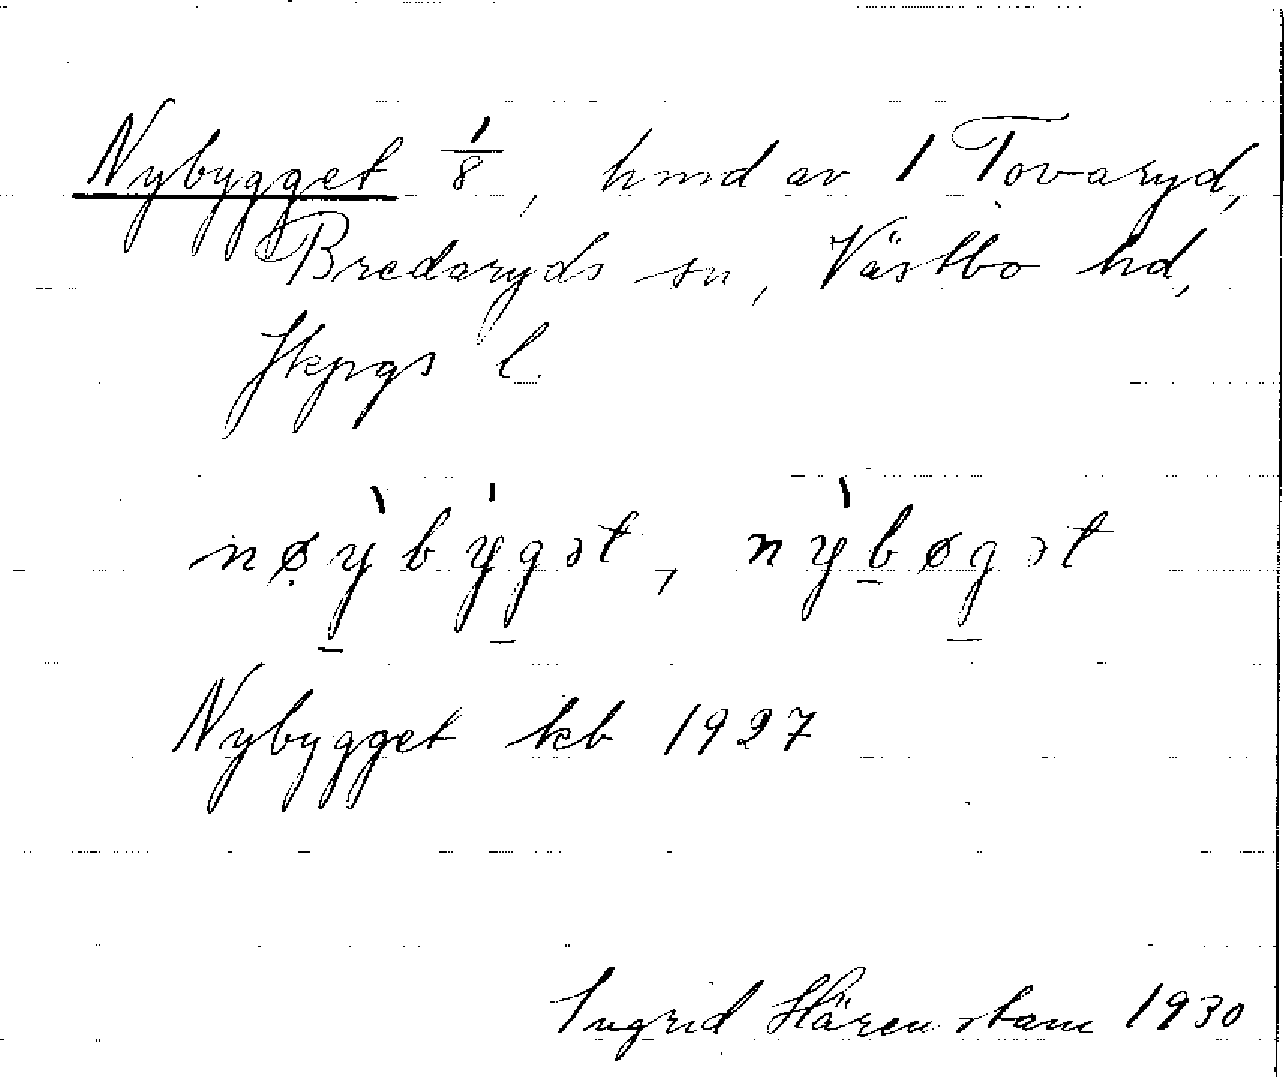 Nybygget 1/8, hmd av 1 Tovaryd,
Bredaryds sn, Västbo hd,
Jkpgs l.
nøỳbýgət, nỳbøgət
Nybygget kb 1927
Ingrid Härenstam 1930